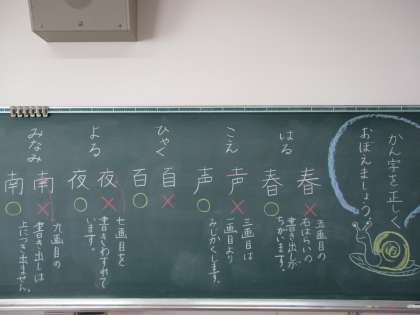 かん字を正しく
おぼえましょう
はる
春
春
五画の
右はらいの
書き出しが
ちがいます。
こえ
声
声
三画目は
一画目より
みじかくします。
ひゃく
百
よる
夜
夜
七画目を
書きわすれて
います。
みなみ
南
南
九画目の
書き出しは
上につき出ません。